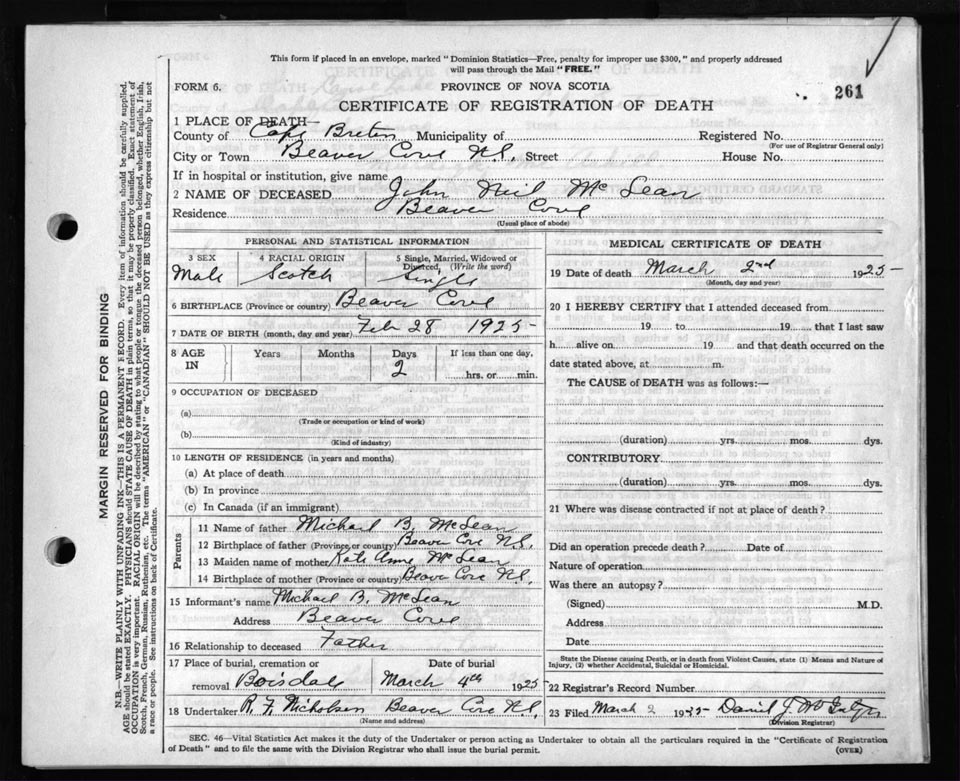 This form if placed in an envelope, marked "Dominion Statistics—Free, penalty for improper use $300," and properly addressed
will pass through the Mail "FREE."
FORM 6.
PROVINCE OF NOVA SCOTIA
261
CERTIFICATE OF REGISTRATION OF DEATH
1 PLACE OF DEATH—
County of Cape Breton Municipality of Registered No.
(For use of Registrar General only)
City or Town Beaver Cove N.S. Street House No.
If in hospital or institution, give name
2 NAME OF DECEASED John Neil McLean
Residence Beaver Cove
(Usual place of abode)
PERSONAL AND STATISTICAL INFORMATION
3 SEX 4 RACIAL ORIGIN 5 Single, Married, Widowed or
Divorced, (Write the word)
Male Scotch Single
6 BIRTHPLACE (Province or country) Beaver Cove
7 DATE OF BIRTH (month, day and year) Feb 28 1925-
8 AGE IN Years Months Days If less than one day,
2 hrs. or min.
9 OCCUPATION OF DECEASED
(a)
(Trade or occupation or kind of work)
(b)
(Kind of industry)
10 LENGTH OF RESIDENCE (in years and months)
(a) At place of death
(b) In province
(c) In Canada (if an immigrant)
Parents
11 Name of father Michael B. McLean
12 Birthplace of father (Province or country) Beaver Cove N.S.
13 Maiden name of mother Kate Ann McLean
14 Birthplace of mother (Province or country) Beaver Cove N.S.
15 Informant's name Michael B. McLean
Address Beaver Cove
16 Relationship to deceased Father
17 Place of burial, cremation or Date of burial
removal Boisdale March 4th 1925-
18 Undertaker R. F. Nicholson Beaver Cove N.S.
(Name and address)
MEDICAL CERTIFICATE OF DEATH
19 Date of death March 2nd 1925-
(Month, day and year)
20 I HEREBY CERTIFY that I attended deceased from
19 to 19 that I last saw
h alive on 19 and that death occurred on the
date stated above, at m.
The CAUSE of DEATH was as follows:—
(duration) yrs. mos. dys.
CONTRIBUTORY
(duration) yrs. mos. dys.
21 Where was disease contracted if not at place of death?
Did an operation precede death? Date of
Nature of operation
Was there an autopsy?
(Signed) M.D.
Address
Date
State the Disease causing Death, or in death from Violent Causes, state (1) Means and Nature of
Injury, (2) whether Accidental, Suicidal or Homicidal.
22 Registrar's Record Number
23 Filed March 2 1925- Daniel J.
(Division Registrar)
SEC. 46—Vital Statistics Act makes it the duty of the Undertaker or person acting as Undertaker to obtain all the particulars required in the "Certificate of Registration
of Death" and to file the same with the Division Registrar who shall issue the burial permit.
(OVER)
MARGIN RESERVED FOR BINDING
N.B.—WRITE PLAINLY WITH UNFADING INK—THIS IS A PERMANENT RECORD. Every item of information should be carefully supplied.
AGE should be stated EXACTLY. PHYSICIANS should STATE CAUSE OF DEATH in plain terms, so that it may be properly classified. Exact statement of
OCCUPATION is very important. RACIAL ORIGIN will be described by stating to what people or tongue the deceased person belonged, whether English, Irish,
Scotch, French, German, Russian, Ruthenian, etc. The terms "AMERICAN" or "CANADIAN" SHOULD NOT BE USED as they express citizenship but not
a race or people. See instructions on back of Certificate.